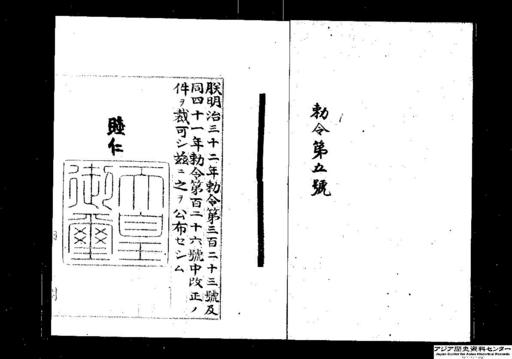 勅令第五號
朕明治三十二年勅令第三百二十三號及
同四十一年勅令第百二十六號中改正ノ
件ヲ裁可シ茲ニ之ヲ公布セシム
睦仁
天皇
御璽
アジア歴史資料センター
Japan Center for Asian Historical Records